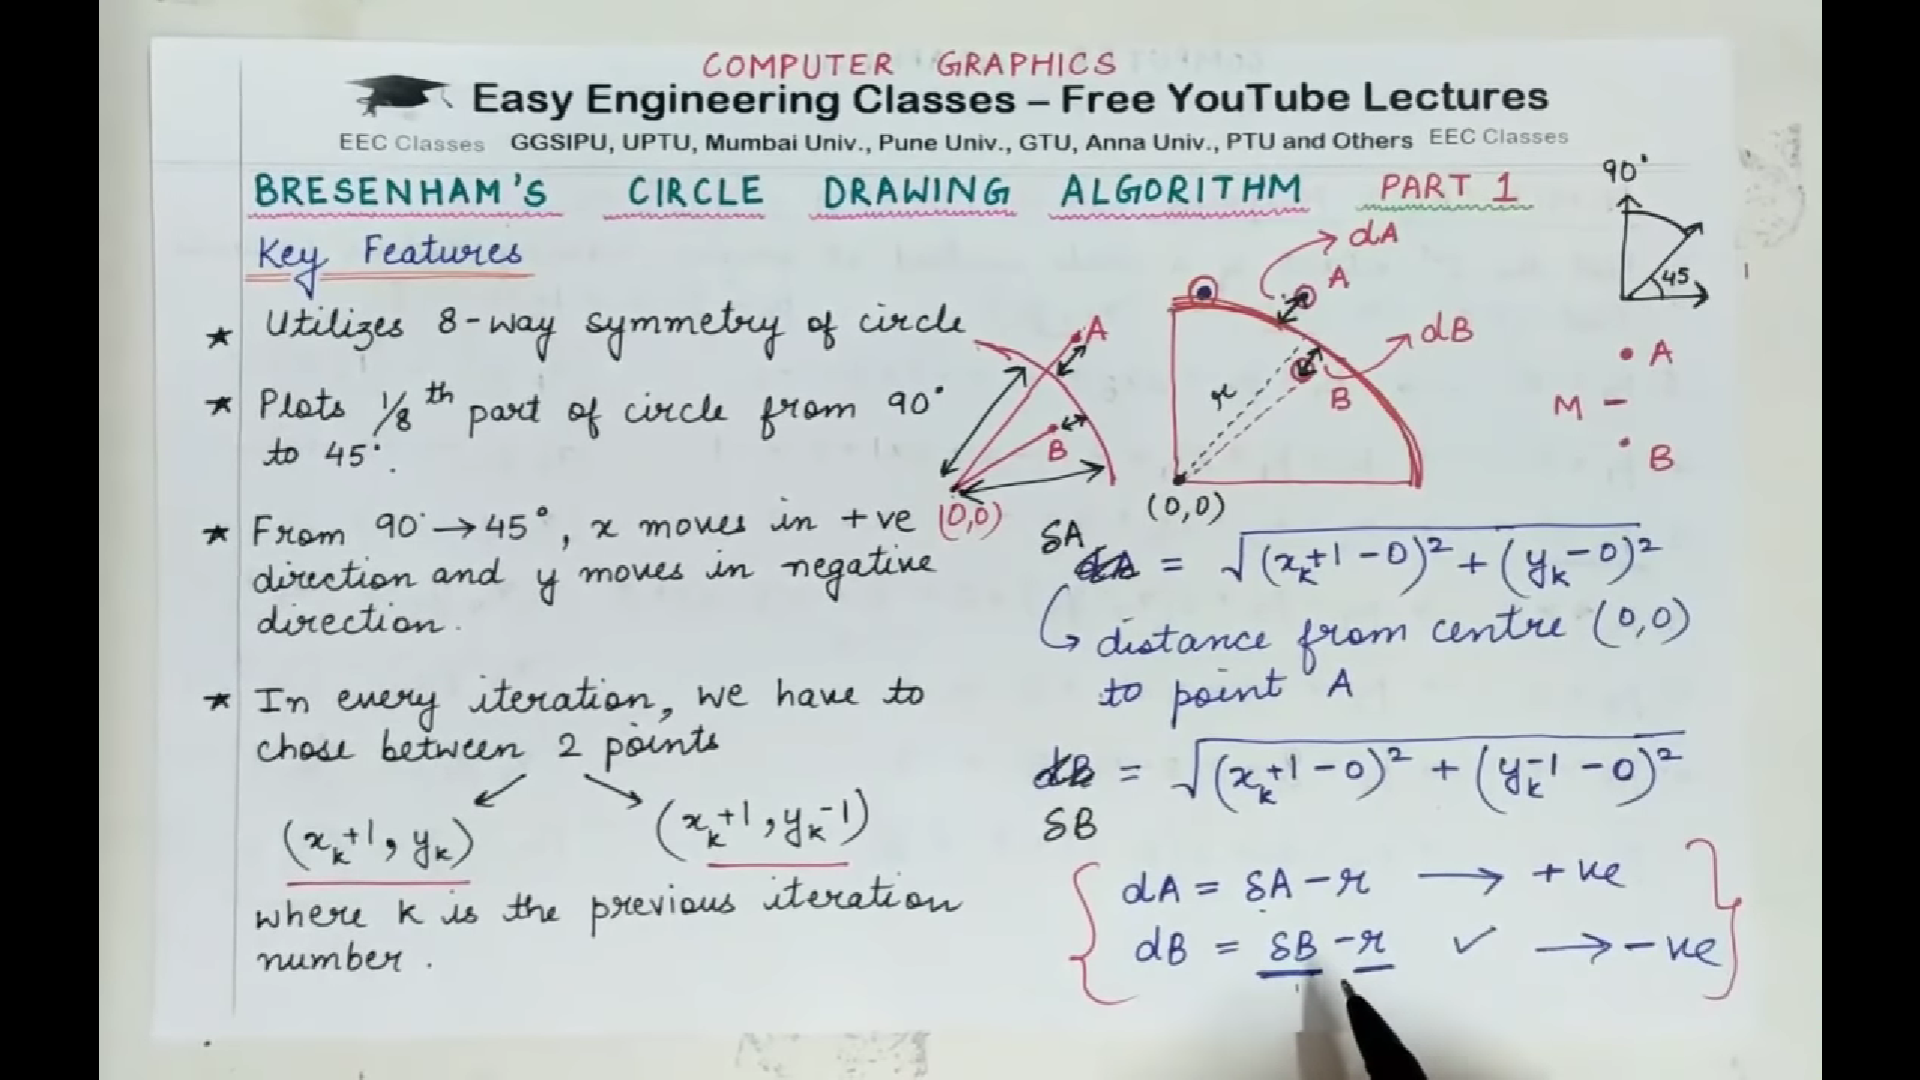 COMPUTER GRAPHICS
Easy Engineering Classes – Free YouTube Lectures
EEC Classes GGSIPU, UPTU, Mumbai Univ., Pune Univ., GTU, Anna Univ., PTU and Others EEC Classes
BRESENHAM'S CIRCLE DRAWING ALGORITHM PART 1
Key Features
★ Utilizes 8-way symmetry of circle
★ Plots 1/8 th part of circle from 90°
to 45°.
★ From 90° → 45°, x moves in +ve
direction and y moves in negative
direction.
★ In every iteration, we have to
chose between 2 points
(xₖ+1, yₖ) (xₖ+1, yₖ-1)
where k is the previous iteration
number.
A
B
(0,0)
dA
A
dB
B
r
(0,0)
90°
45
A
M
B
δA
dA = √(xₖ+1-0)² + (yₖ-0)²
distance from centre (0,0)
to point A
dB = √(xₖ+1-0)² + (yₖ-1-0)²
δB
dA = δA - r → +ve
dB = δB - r ✓ → -ve